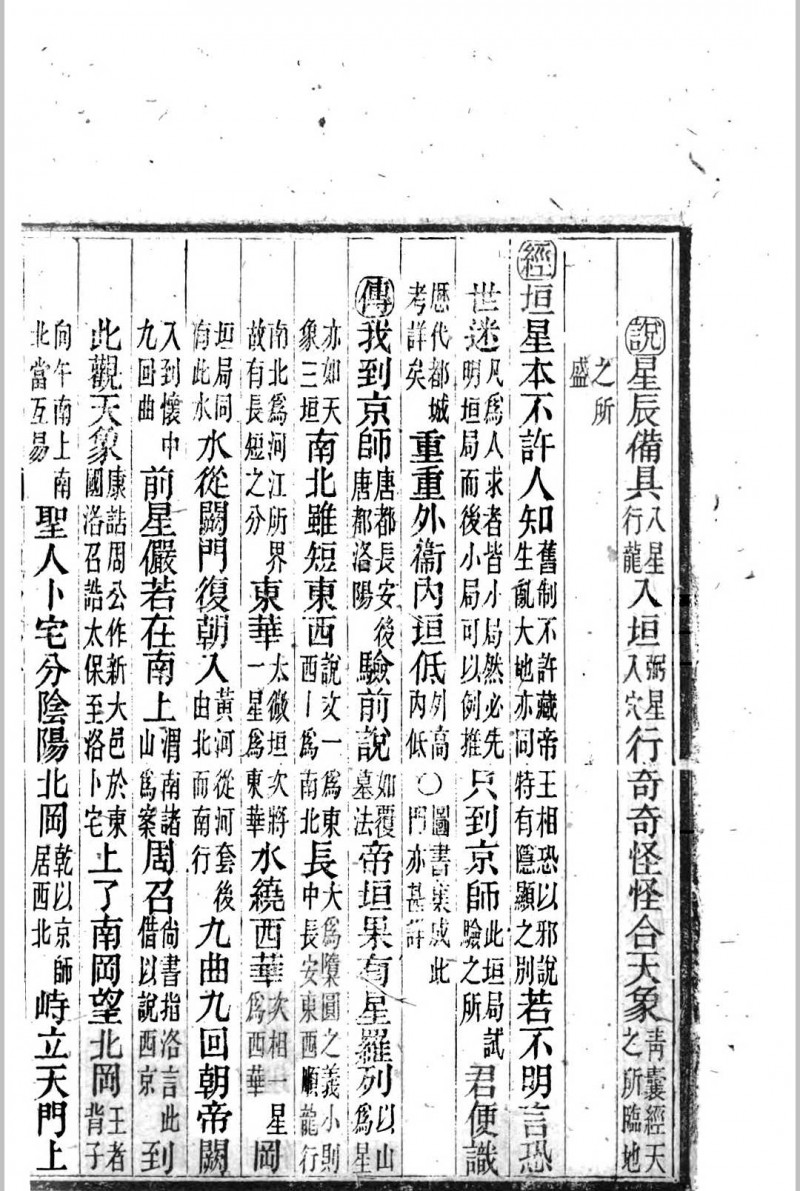 說星辰備具八星行龍入垣弼星入穴行奇奇怪怪合天象青囊經天之所臨地
之所盛
經垣星本不許人知舊制不許藏帝王相恐以邪說生亂大地亦同特有隱顯之別若不明言恐
世迷凡爲人求者皆小局然必先明垣局而後小局可以例推只到京師此垣局試驗之所君便識
歷代都城考詳矣重重外衞內垣低外高內低〇圖書集成此門亦甚詳
傳我到京師唐都長安後唐都洛陽驗前說如覆墓法帝垣果有星羅列以山爲星
亦如天象三垣南北雖短東西說文一爲東西丨爲南北長大爲隋圓之義小則中長安東西順龍行
南北爲河江所界故有長短之分東華太微垣次將一星爲東華水繞西華次相一星爲西華岡
垣局同有此水水從闢門復朝入黃河從河套後由北而南行九曲九回朝帝闕
入到懷中九回曲前星儼若在南上渭南諸山爲案周召尚書指洛言此借以說西京到
此觀天象康誥周公作新大邑於東國洛召誥太保至洛卜宅上了南岡望北岡王者背子
向午南上南北當互易聖人卜宅分陰陽北岡乾以京師居西北峙立天門上